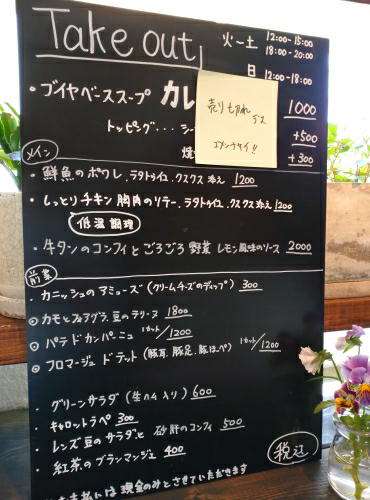 Take out
火〜土 12:00-15:00
18:00-20:00
日 12:00-18:00
・ブイヤベーススープ カレ 1000
トッピング・・・シー +500
焼 +300
売り切れ
デス
ゴメンナサイ!!
メイン
・鮮魚のポワレ、ラタトゥイユ、クスクス添え 1200
・しっとりチキン胸肉のソテー、ラタトゥイユ、クスクス添え 1200
低温調理
・牛タンのコンフィとごろごろ野菜 レモン風味のソース 2000
前菜
・カニッシュのアミューズ(クリームチーズのディップ) 300
◎カモとフォアグラ、豆のテリーヌ 1800
◎パテ ド カンパーニュ 1カット/1200
◎フロマージュ ド テット(豚耳、豚足、豚ほっぺ) 1カット/1200
・グリーンサラダ(生ハム入り) 600
・キャロットラペ 300
・レンズ豆のサラダと 砂肝のコンフィ 500
・紅茶のブランマンジェ 400
税込
お支払いは現金のみとさせていただきます